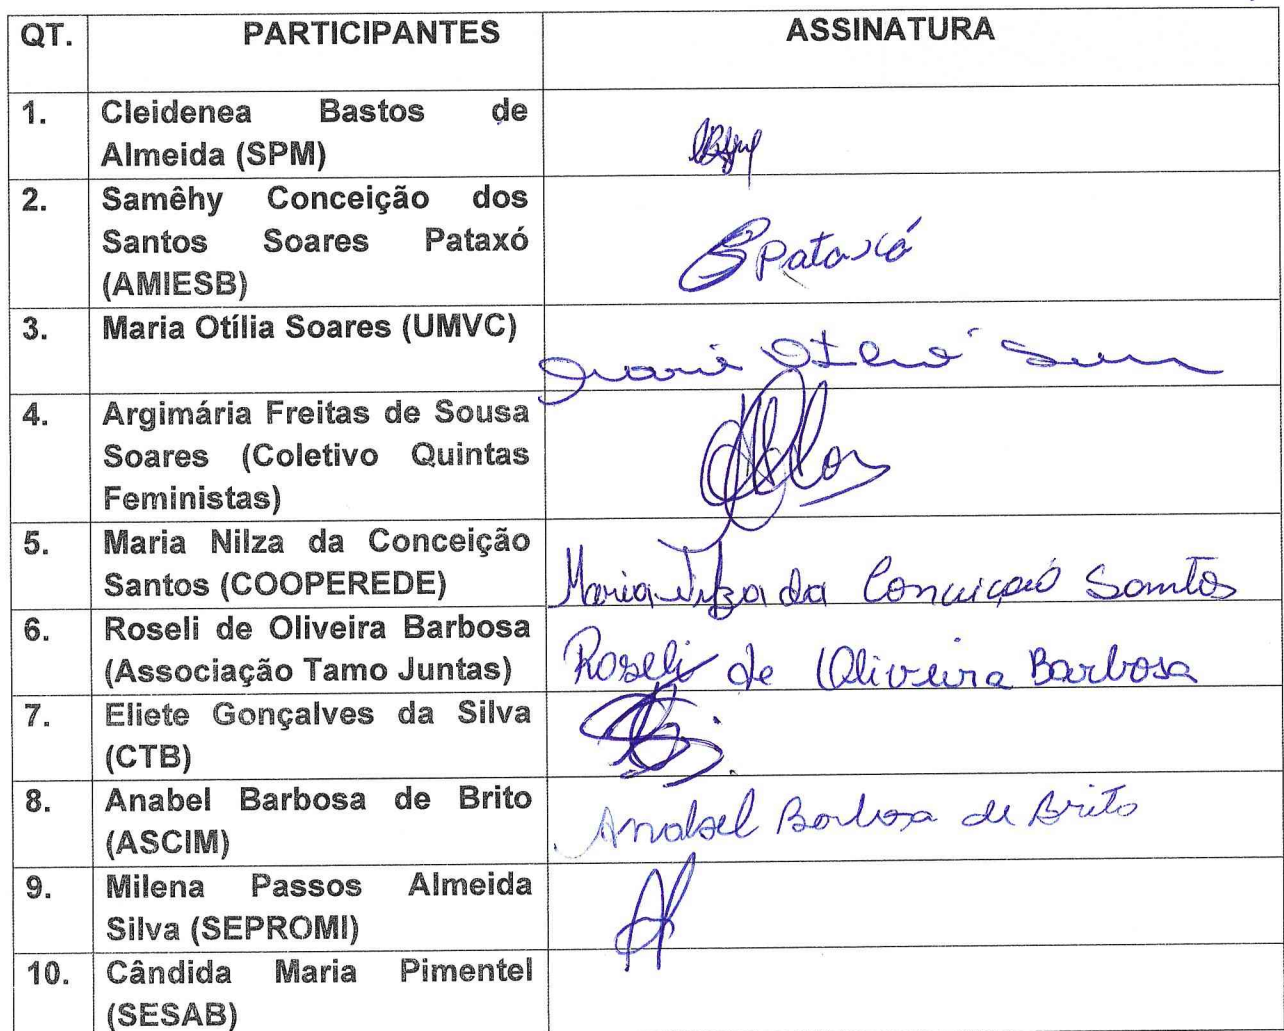 QT. PARTICIPANTES ASSINATURA
1. Cleidenea Bastos de
Almeida (SPM)
2. Samêhy Conceição dos
Santos Soares Pataxó
(AMIESB)
SPataxó
3. Maria Otília Soares (UMVC)
4. Argimária Freitas de Sousa
Soares (Coletivo Quintas
Feministas)
5. Maria Nilza da Conceição
Santos (COOPEREDE)
Maria Nilza da Conceição Santos
6. Roseli de Oliveira Barbosa
(Associação Tamo Juntas)
Roseli de Oliveira Barbosa
7. Eliete Gonçalves da Silva
(CTB)
8. Anabel Barbosa de Brito
(ASCIM)
Anabel Barbosa de Brito
9. Milena Passos Almeida
Silva (SEPROMI)
10. Cândida Maria Pimentel
(SESAB)